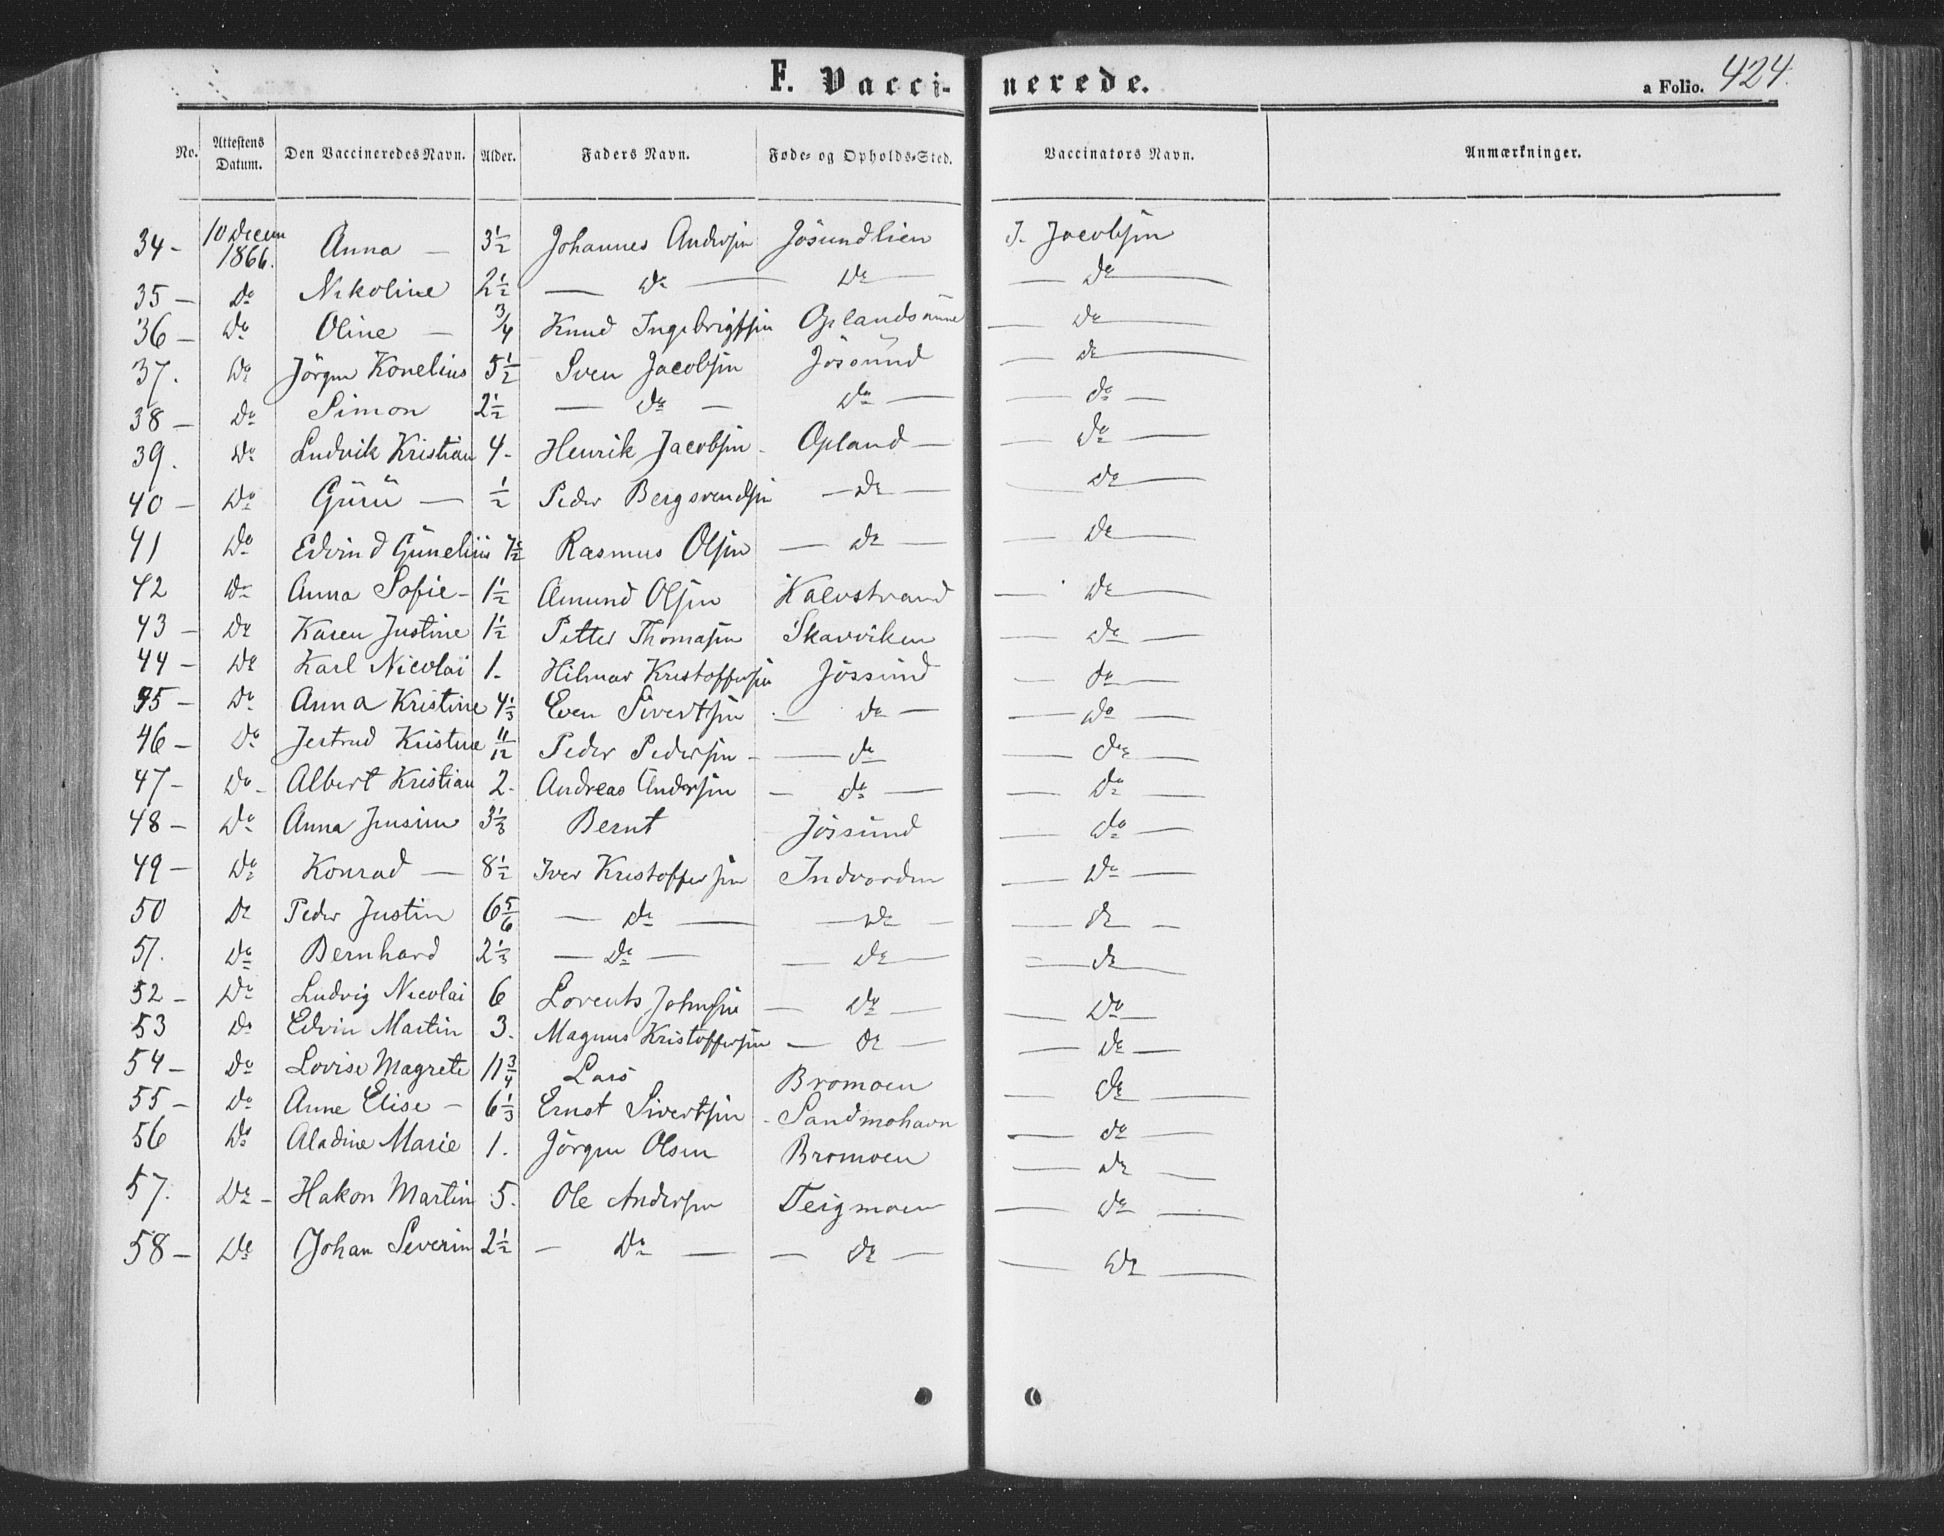 F. Vacci- nerede. a Folio. 424.
No. Attestens Datum. Den Vaccineredes Navn. Alder. Faders Navn. Føde- og Opholds-Sted. Vaccinators Navn. Anmærkninger.
34 - 10 Decem 1866. Anna - 3 1/2 Johannes Andersen Jösundlien J. Jacobsen
35 - Do Nikoline 2 1/2 - Do - Do - - Do -
36 - Do Oline - 3/4 Knud Ingebrigtsen Oplands - Do -
37. Do Jörgen Konelius 5 1/2 Sven Jacobsen Jösund - Do -
38 - Do Simon 2 1/2 - Do - Do - - do -
39. Do Ludvik Kristian 4 - Henrik Jacobsen - Opland - - Do -
40 - Do Gürü - 1/2 Peder Bergsvendsen - Do - - Do -
41 Do Edvind Günelius 7 1/2 Rasmus Olsen - Do - - Do -
42 Do Anna Sofie - 1 1/2 Amund Olsen Kalvstrand - Do -
43 - Do Karen Justine 1 1/2 Petter Thomasen Skavviken - Do -
44 - Do Karl Nicolai 1. Hilmar Kristoffersen Jössünd - do -
45 - Do Anna Kristine 4 1/3 Even Sivertsen - do - - Do -
46 - Do Jertrud Kristine 11/12 Peder Pedersen - - do - do -
47 - Do - Albert Kristian 2. Andreas Andersen - do - - Do -
48 - Do Anna Jensine 3 1/3 Bernt Jössünd - do -
49 - Do Konrad - 8 1/2 Iver Kristoffersen Indvorden - Do -
50 Do Peder Justin 6 5/6 - do - - Do - - do -
51. Do Bernhard 2 1/3 - Do - - do - - do -
52 - Do Ludvig Nicolai 6 Lorents Johnsen - Do - - Do -
53 Do Edvin Martin 3. Magnus Kristoffersen - do - - Do -
54 - Do Lovise Magrete 11 3/4 Lars Bromoen - do -
55 - Do Anne Elise - 6 1/3 Ernst Sivertsen - Sandmohavn - do -
56 Do Aladine Marie 1. Jörgen Olsen Bromoen - do -
57. Do - Hakon Martin 5. Ole Andersen Teigmoen - do -
58 - Do Johan Severin 2 1/2 - Do - - do - - Do -